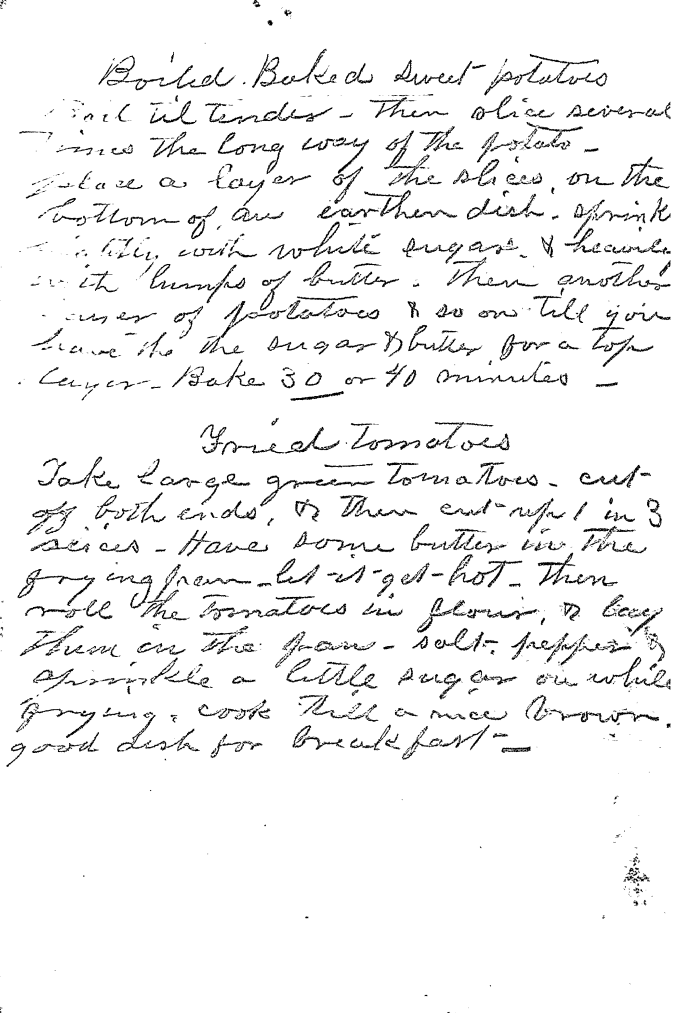 Boiled Baked sweet potatoes
Boil til tender - then slice several
times the long way of the potato -
place a layer of the slices, on the
bottom of, an earthen dish. sprink
lightly with white sugar, & heavily
with lumps of butter. Then another
layer of potatoes & so on till you
have the the sugar & butter for a top
layer - Bake 30 or 40 minutes -
Fried tomatoes
Take large green tomatoes - cut
off both ends, & then cut up 1 in 3
slices - Have some butter in the
frying pan - let it get hot - Then
roll the tomatoes in flour, & lay
them in the pan - salt, pepper &
sprinkle a little sugar on while
frying. cook till a nice brown.
good dish for breakfast -